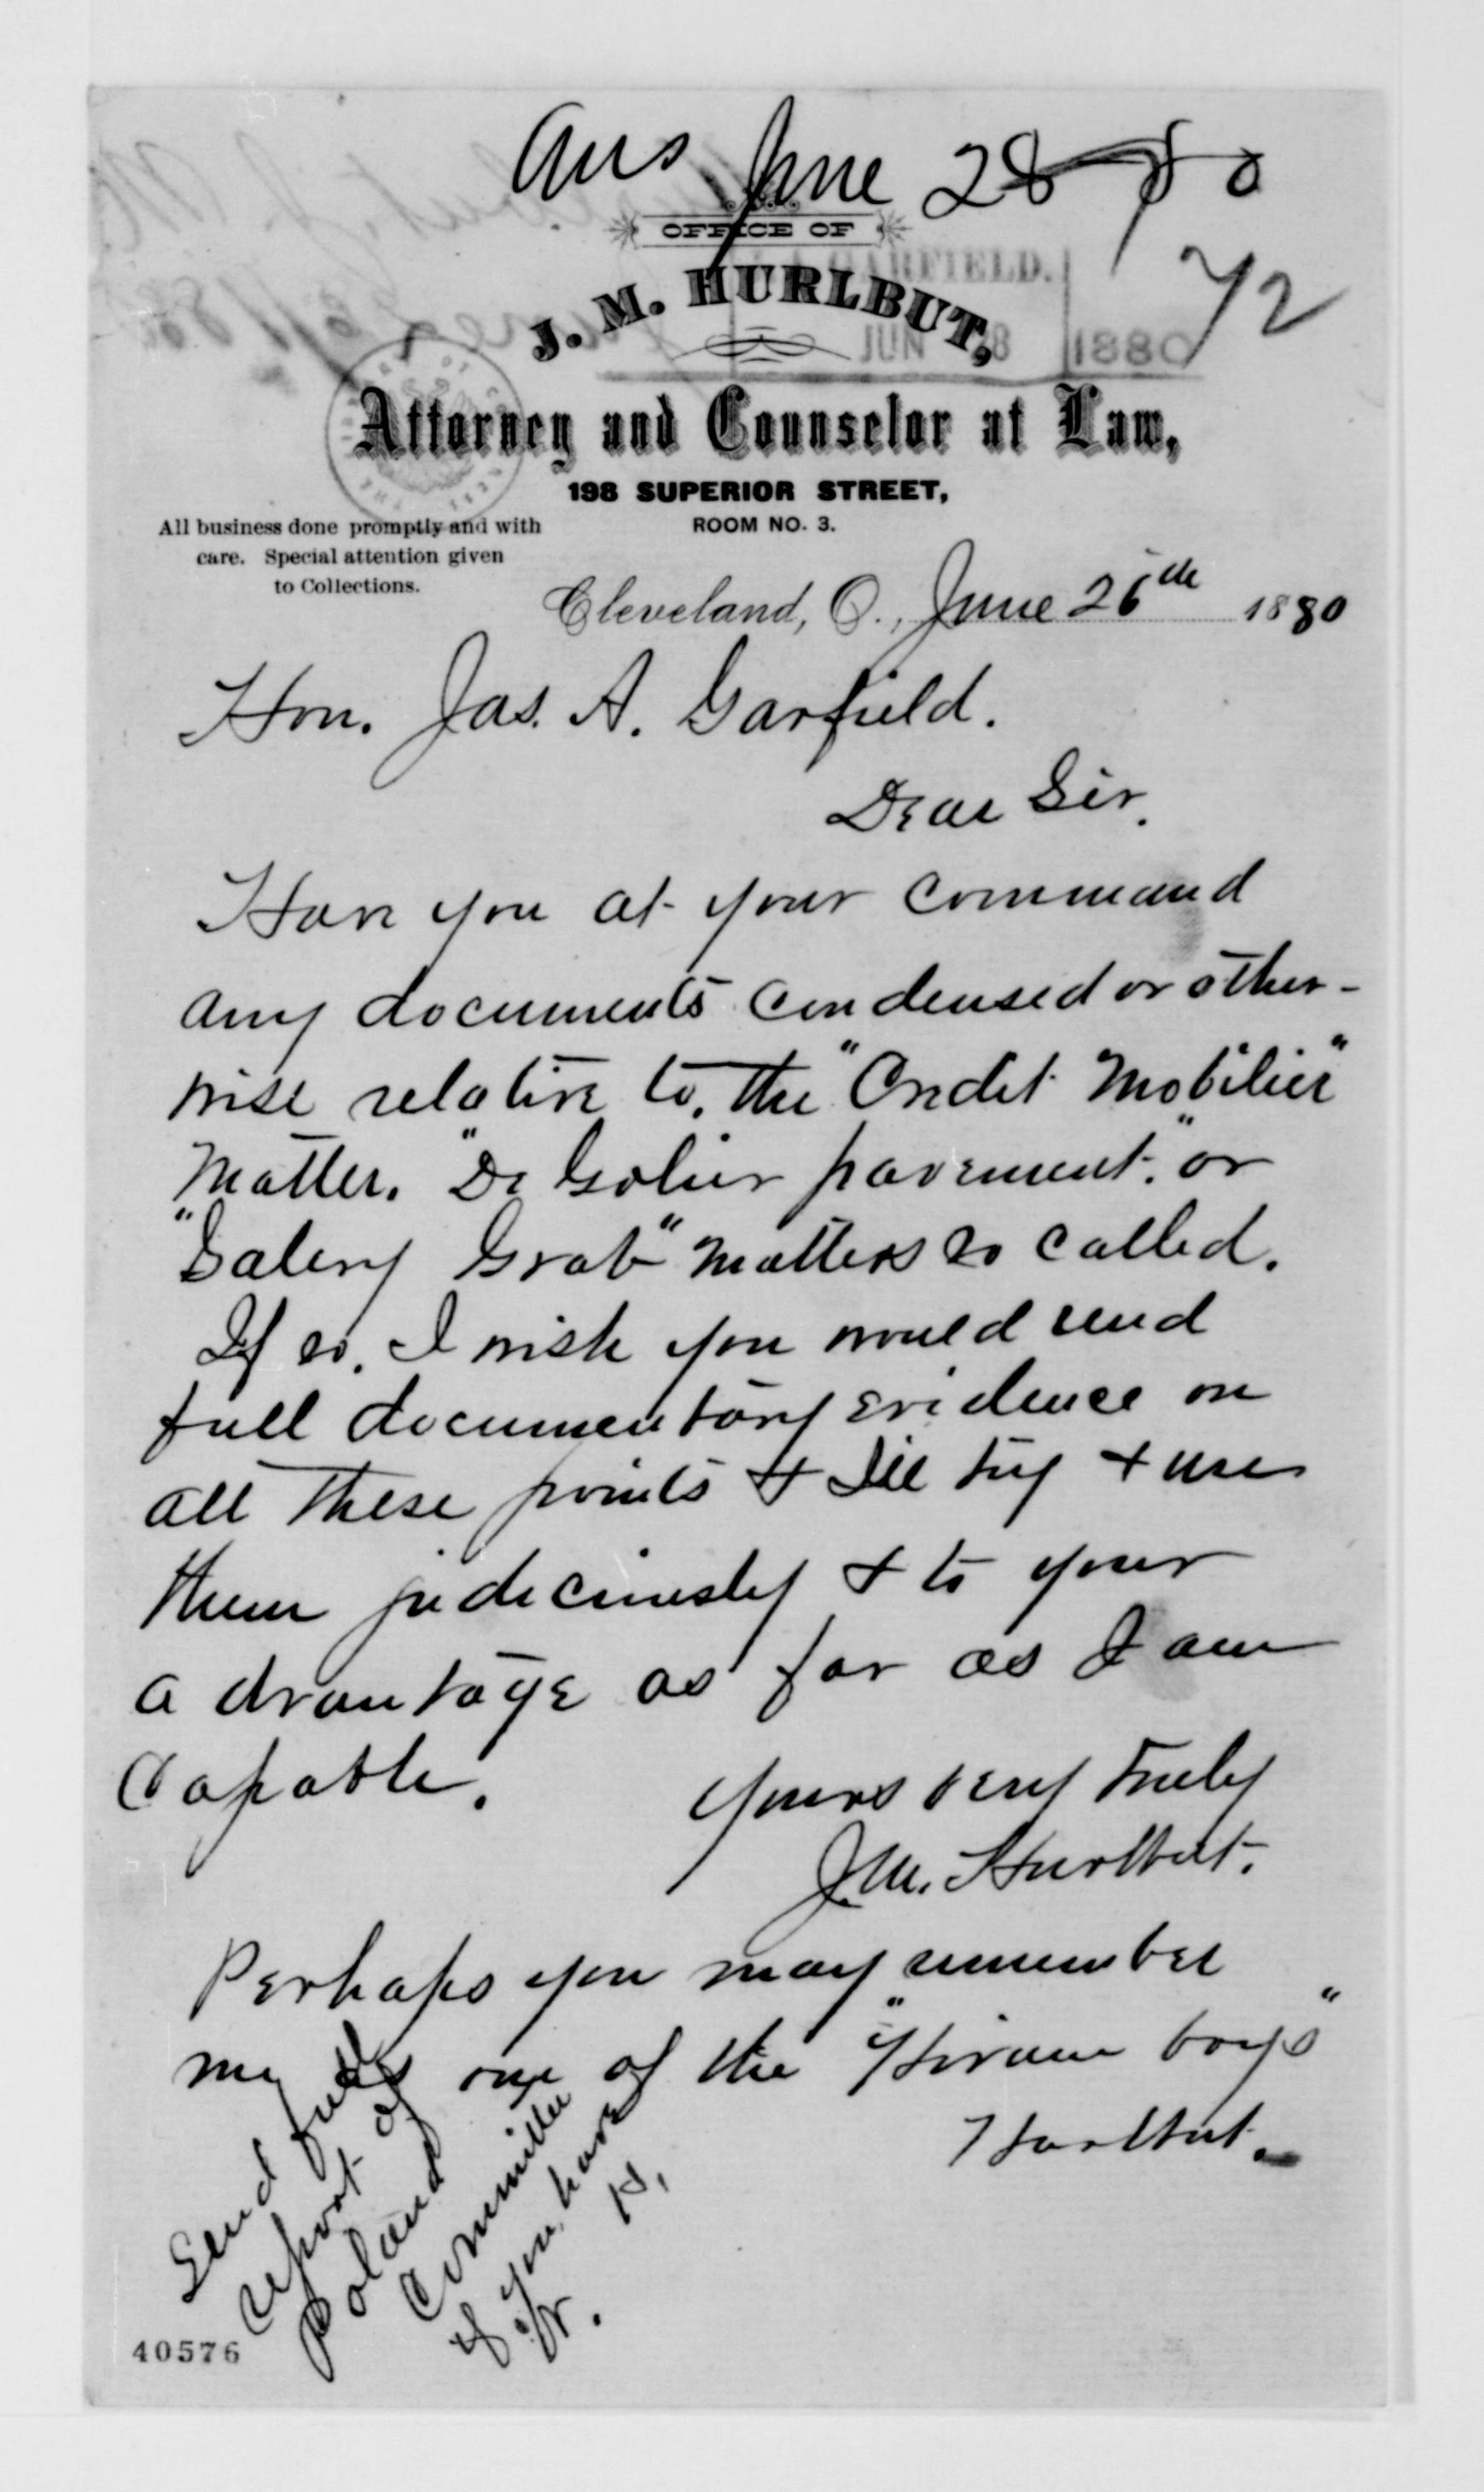 Ans June 28 80
72
OFFICE OF
J. M. HURLBUT,
GARFIELD.
JUN 28 1880
Attorney and Counselor at Law,
198 SUPERIOR STREET,
ROOM NO. 3.
All business done promptly and with
care. Special attention given
to Collections.
Cleveland, O., June 26th 1880
Hon. Jas. A. Garfield.
Dear Sir.
Have you at your command
any documents condensed or other-
wise relative to, the "Credit Mobilier"
Matter. "De Golier pavement." or
"Salery Grab" matters so called.
If so, I wish you would send
full documentary evidence on
all these points & I'll try & use
them judiciously & to your
advantage as far as I am
Capable.
Yours very truly
J.M. Hurlbut.
Perhaps you may remember
me as one of the "Hiram boys"
Hurlbut.
Send full
report of
Poland
Committee
if you have
it. H.
40576